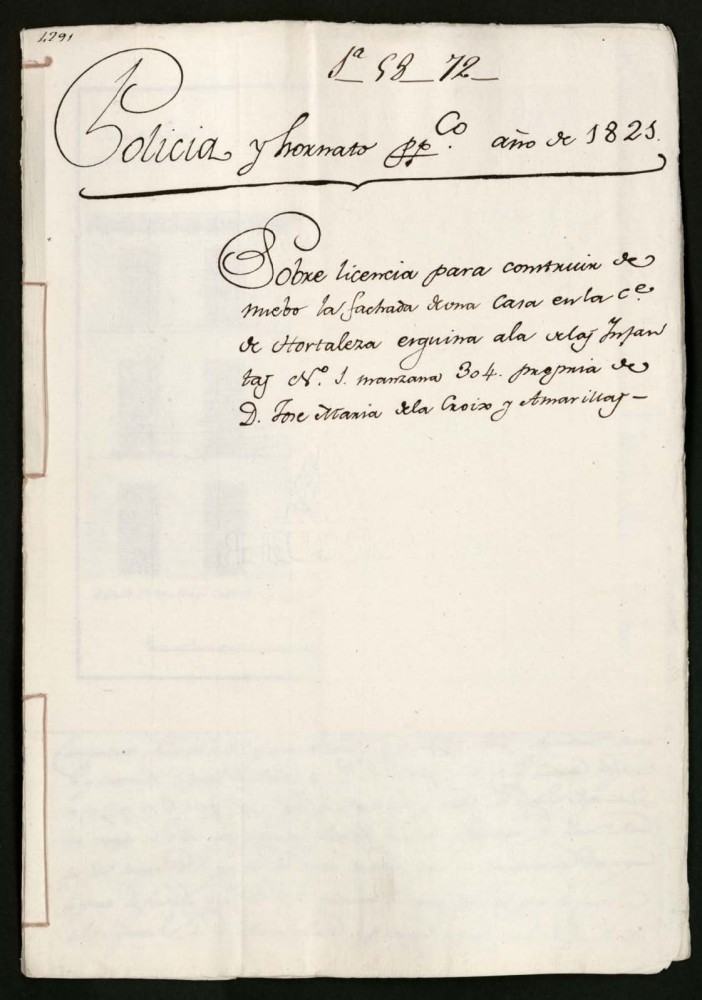 1,291
1ª_58_72_
Policia y hornato ppCo. año de 1821.
Sobre licencia para construir de
nuebo la fachada de una Casa en la Ce.
de Hortaleza esquina a la de las Infan
tas No. 1. manzana 304. propria de
D. Jose Maria de la Croix y Amarillas